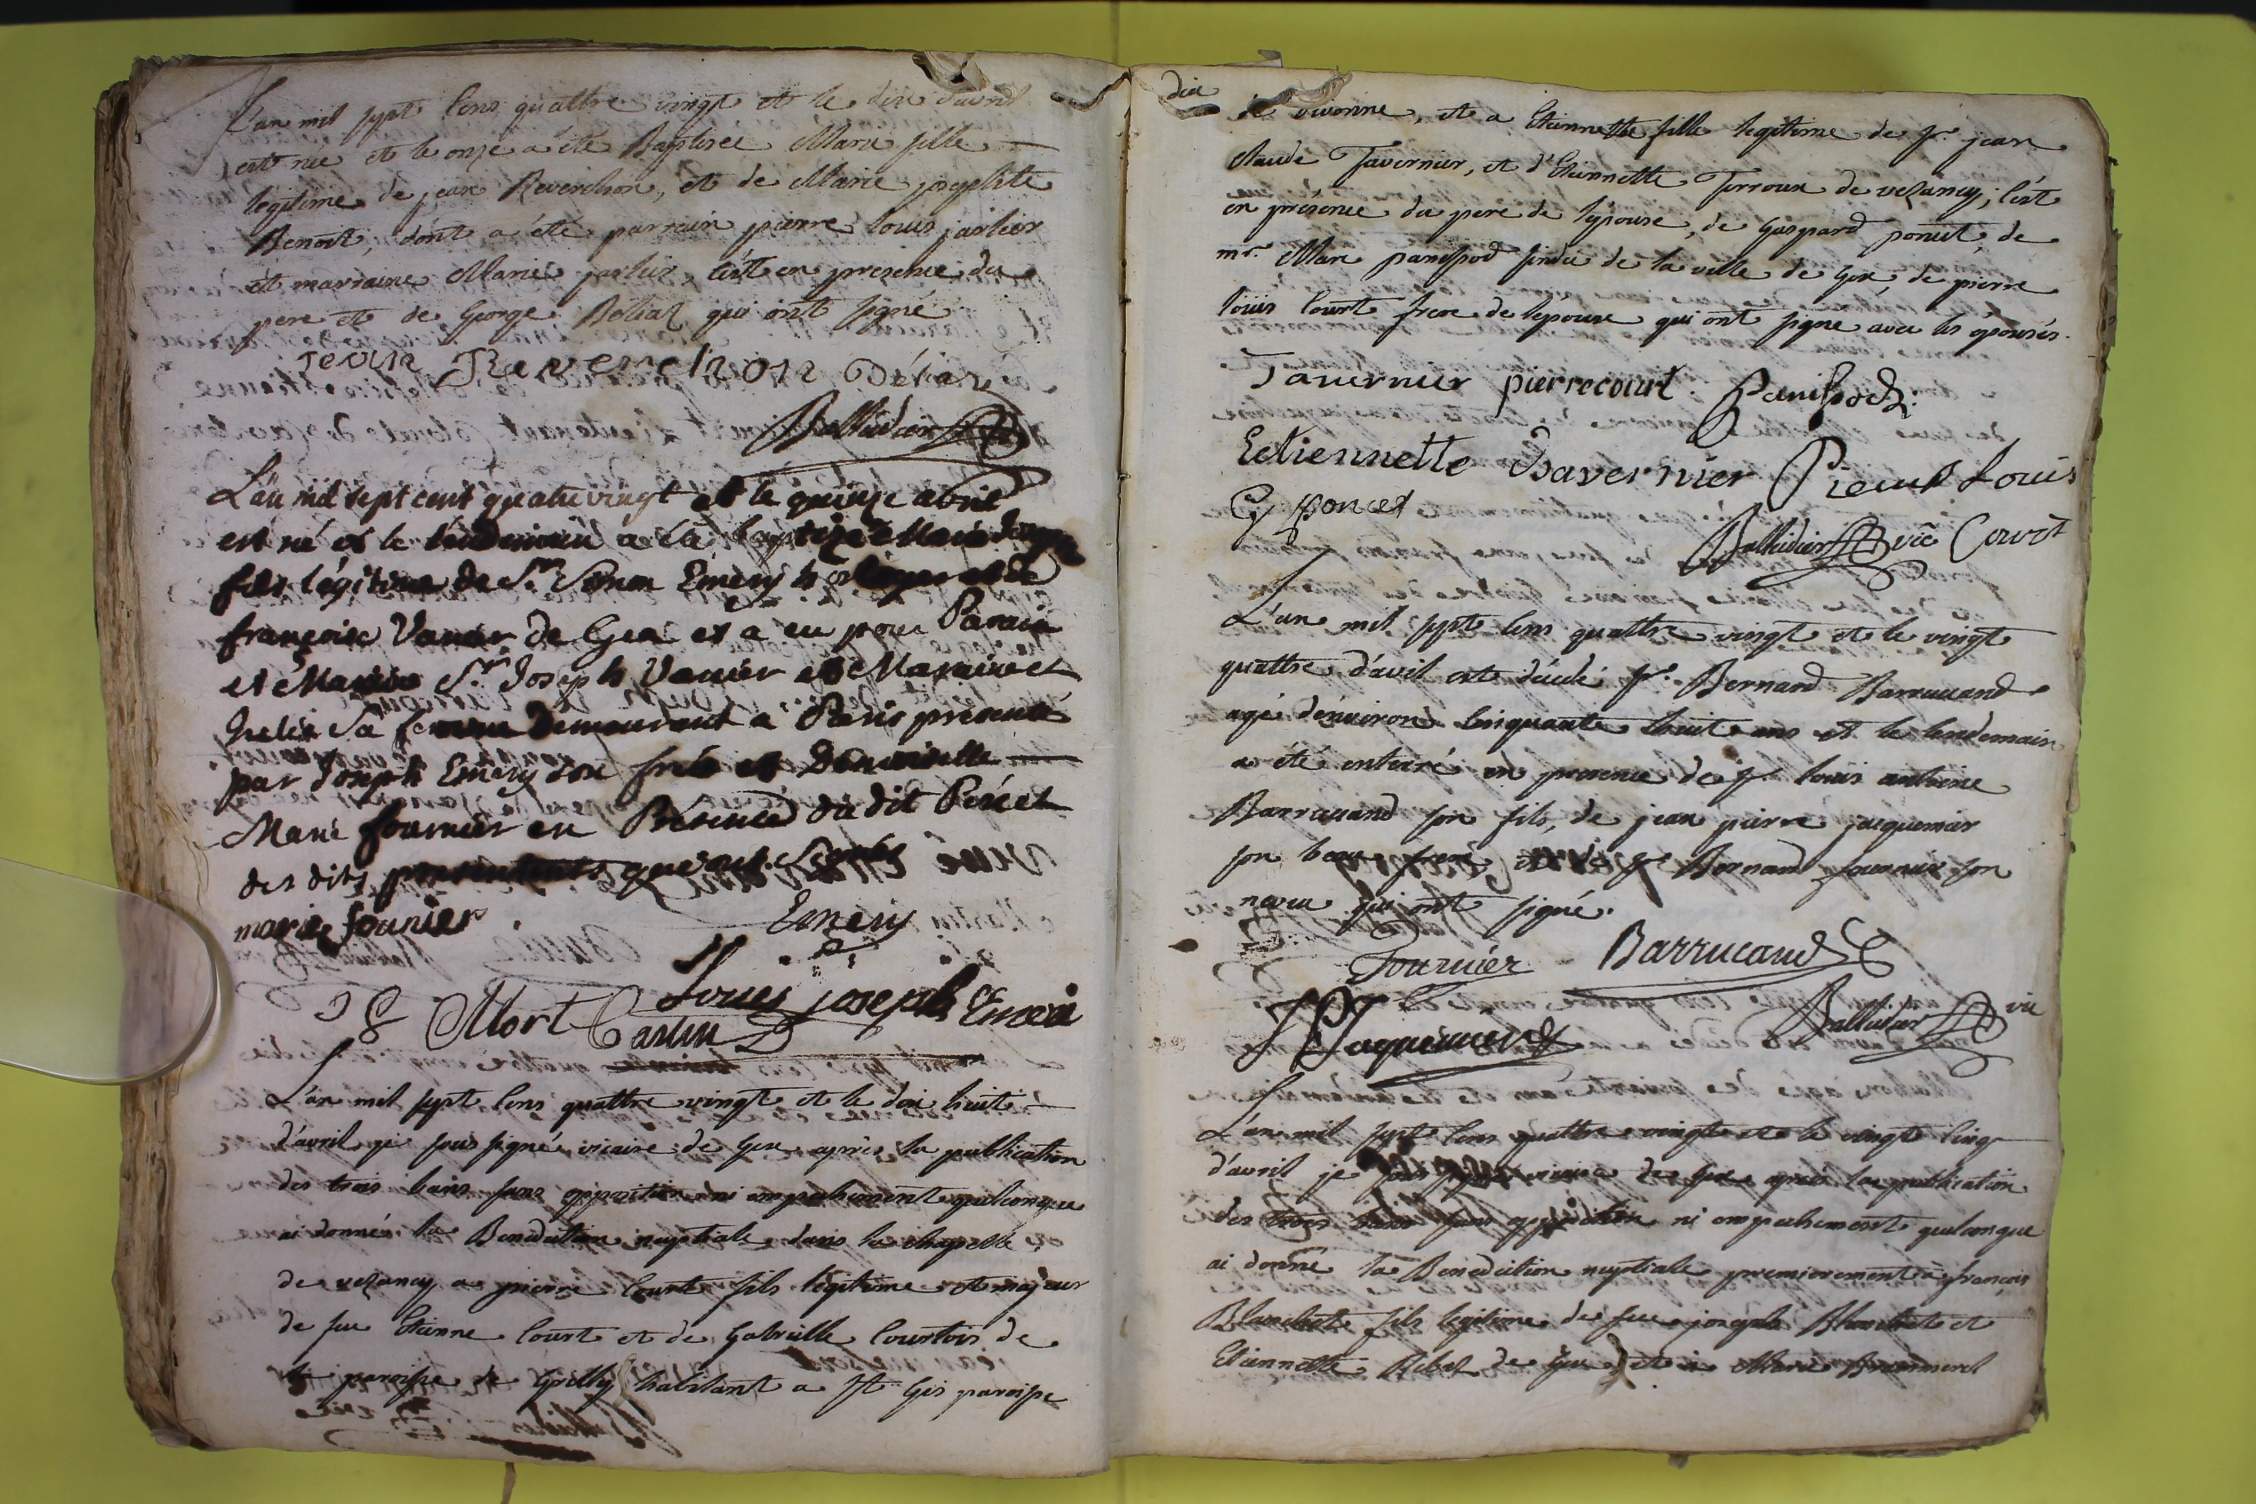 L'an mil sept cens quattre vingt et le dix d'avril
est née et le onze a été Baptisée Marie fille
legitime de jean Reverchon, et de Marie josephte
Benoit, dont a été parrain pierre louis jarlier
et marraine Marie jarlier, c'est en presence du
pere et de George Béliaz qui ont signé
Jean Reverchon Béliaz
Balliadier
L'an mil sept cent quatre vingt et le quinze abril
est né et le lendemain a été baptizé Marie Joseph
fils légitime de Sr. Simon Emery horloger et de
françoise Vanier de Gex et a eu pour Parain
et Maraine Sr. Joseph Vanier et Maraine et
sa femme Demeurant à Paris présenté
par Joseph Emery son frère et Demoiselle
Marie fournier en Présence du dit Père et
des dits
marie founier Emery
Louis joseph Emeri
J G Mort Carlin
L'an mil sept cens quattre vingt et le dix huit
d'avril je sous signé vicaire de Gex après la publication
des trois bans sans opposition ni empechement quelconque
ai donné la Benediction nuptiale dans la chapelle
de vezancy a pierre Court fils légitime et majeur
de feu Etienne Court et de Gabrielle Courtois de
la paroisse de Grilly habitant a St Gis paroisse
dix
de divonne, et a Etiennette fille legitime de Sr. jean
claude Tavernier, et d'Etiennette Terroux de vezancy; c'est
en présence du pere de l'epouse, de Gaspard poncet, de
mr. Marc panissod sindic de la ville de Gex, de pierre
louis Court frere de l'époux qui ont signé avec les épousés.
Tavernier pierre court. Panissod
Etiennette Tavernier Pierre Louis
G poncet
Balliadier vic Court
L'an mil sept cens quattre vingt et le vingt
quattre d'avril est décédé Sr. Bernard Barrucand
agé d'environ cinquante huit ans et le lendemain
a été enterré en presence de Sr louis antoine
Barrucand son fils, de jean pierre jacquemier
son beau frere, et de Sr Bernard fournier son
neveu qui ont signé.
Fournier Barrucand
JP Jaquemier
Balliadier vic
L'an mil sept cens quattre vingt et le vingt cinq
d'avril je sous signé vicaire de Gex après la publication
des trois bans sans opposition ni empechement quelconque
ai donné la Benediction nuptiale premierement à françois
Blanchet fils legitime de feu joseph Blanchet et
Etiennette de Gex, et a Marie